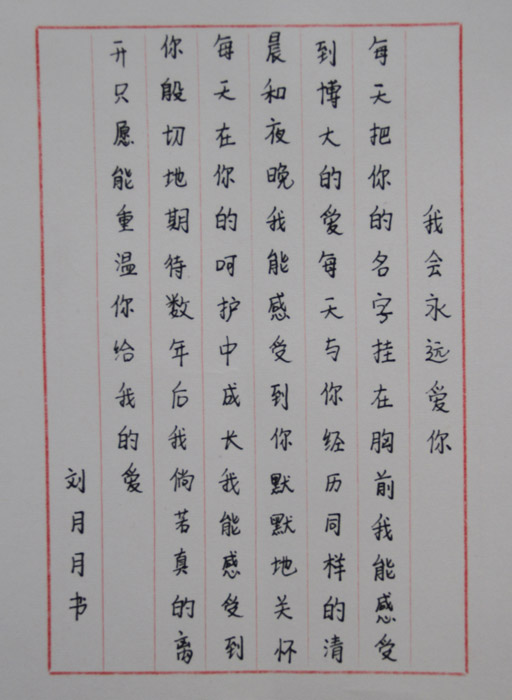 我会永远爱你
每天把你的名字挂在胸前我能感受
到博大的爱每天与你经历同样的清
晨和夜晚我能感受到你默默地关怀
每天在你的呵护中成长我能感受到
你殷切地期待数年后我倘若真的离
开只愿能重温你给我的爱
刘月月书